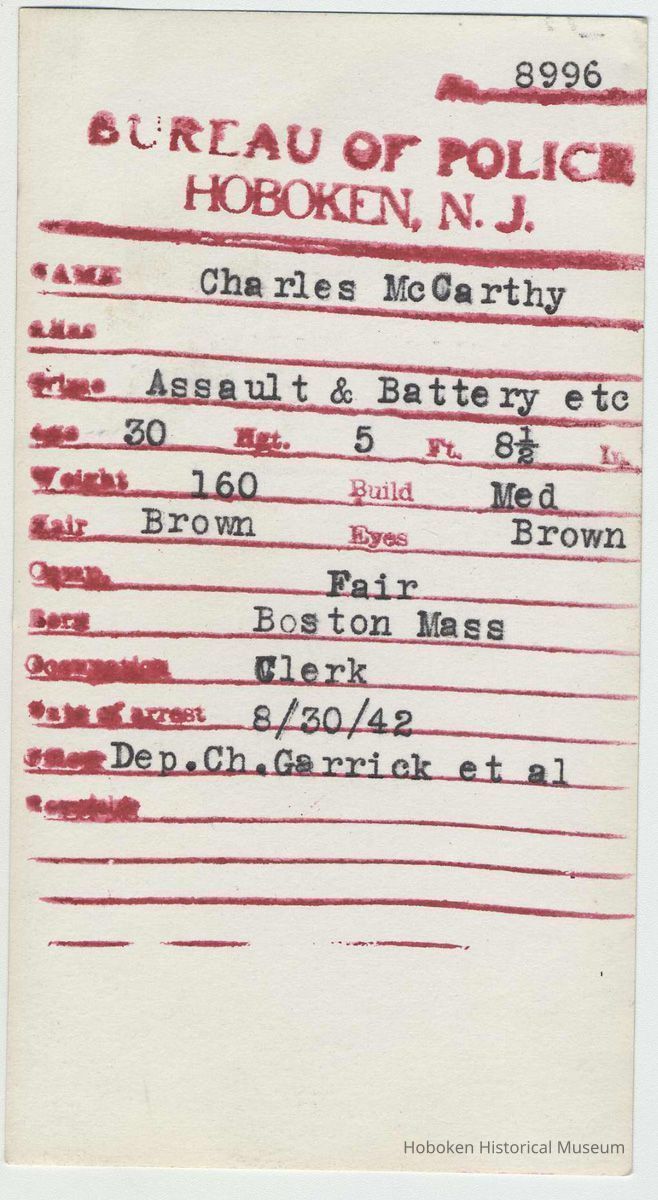 8996
BUREAU OF POLICE
HOBOKEN, N. J.
NAME Charles McCarthy
Alias
Crime Assault & Battery etc
Age 30 Hgt. 5 Ft. 8½ In.
Weight 160 Build Med
Hair Brown Eyes Brown
Fair
Born Boston Mass
Occupation Clerk
Date of arrest 8/30/42
Officer Dep.Ch.Garrick et al
Remarks
Hoboken Historical Museum